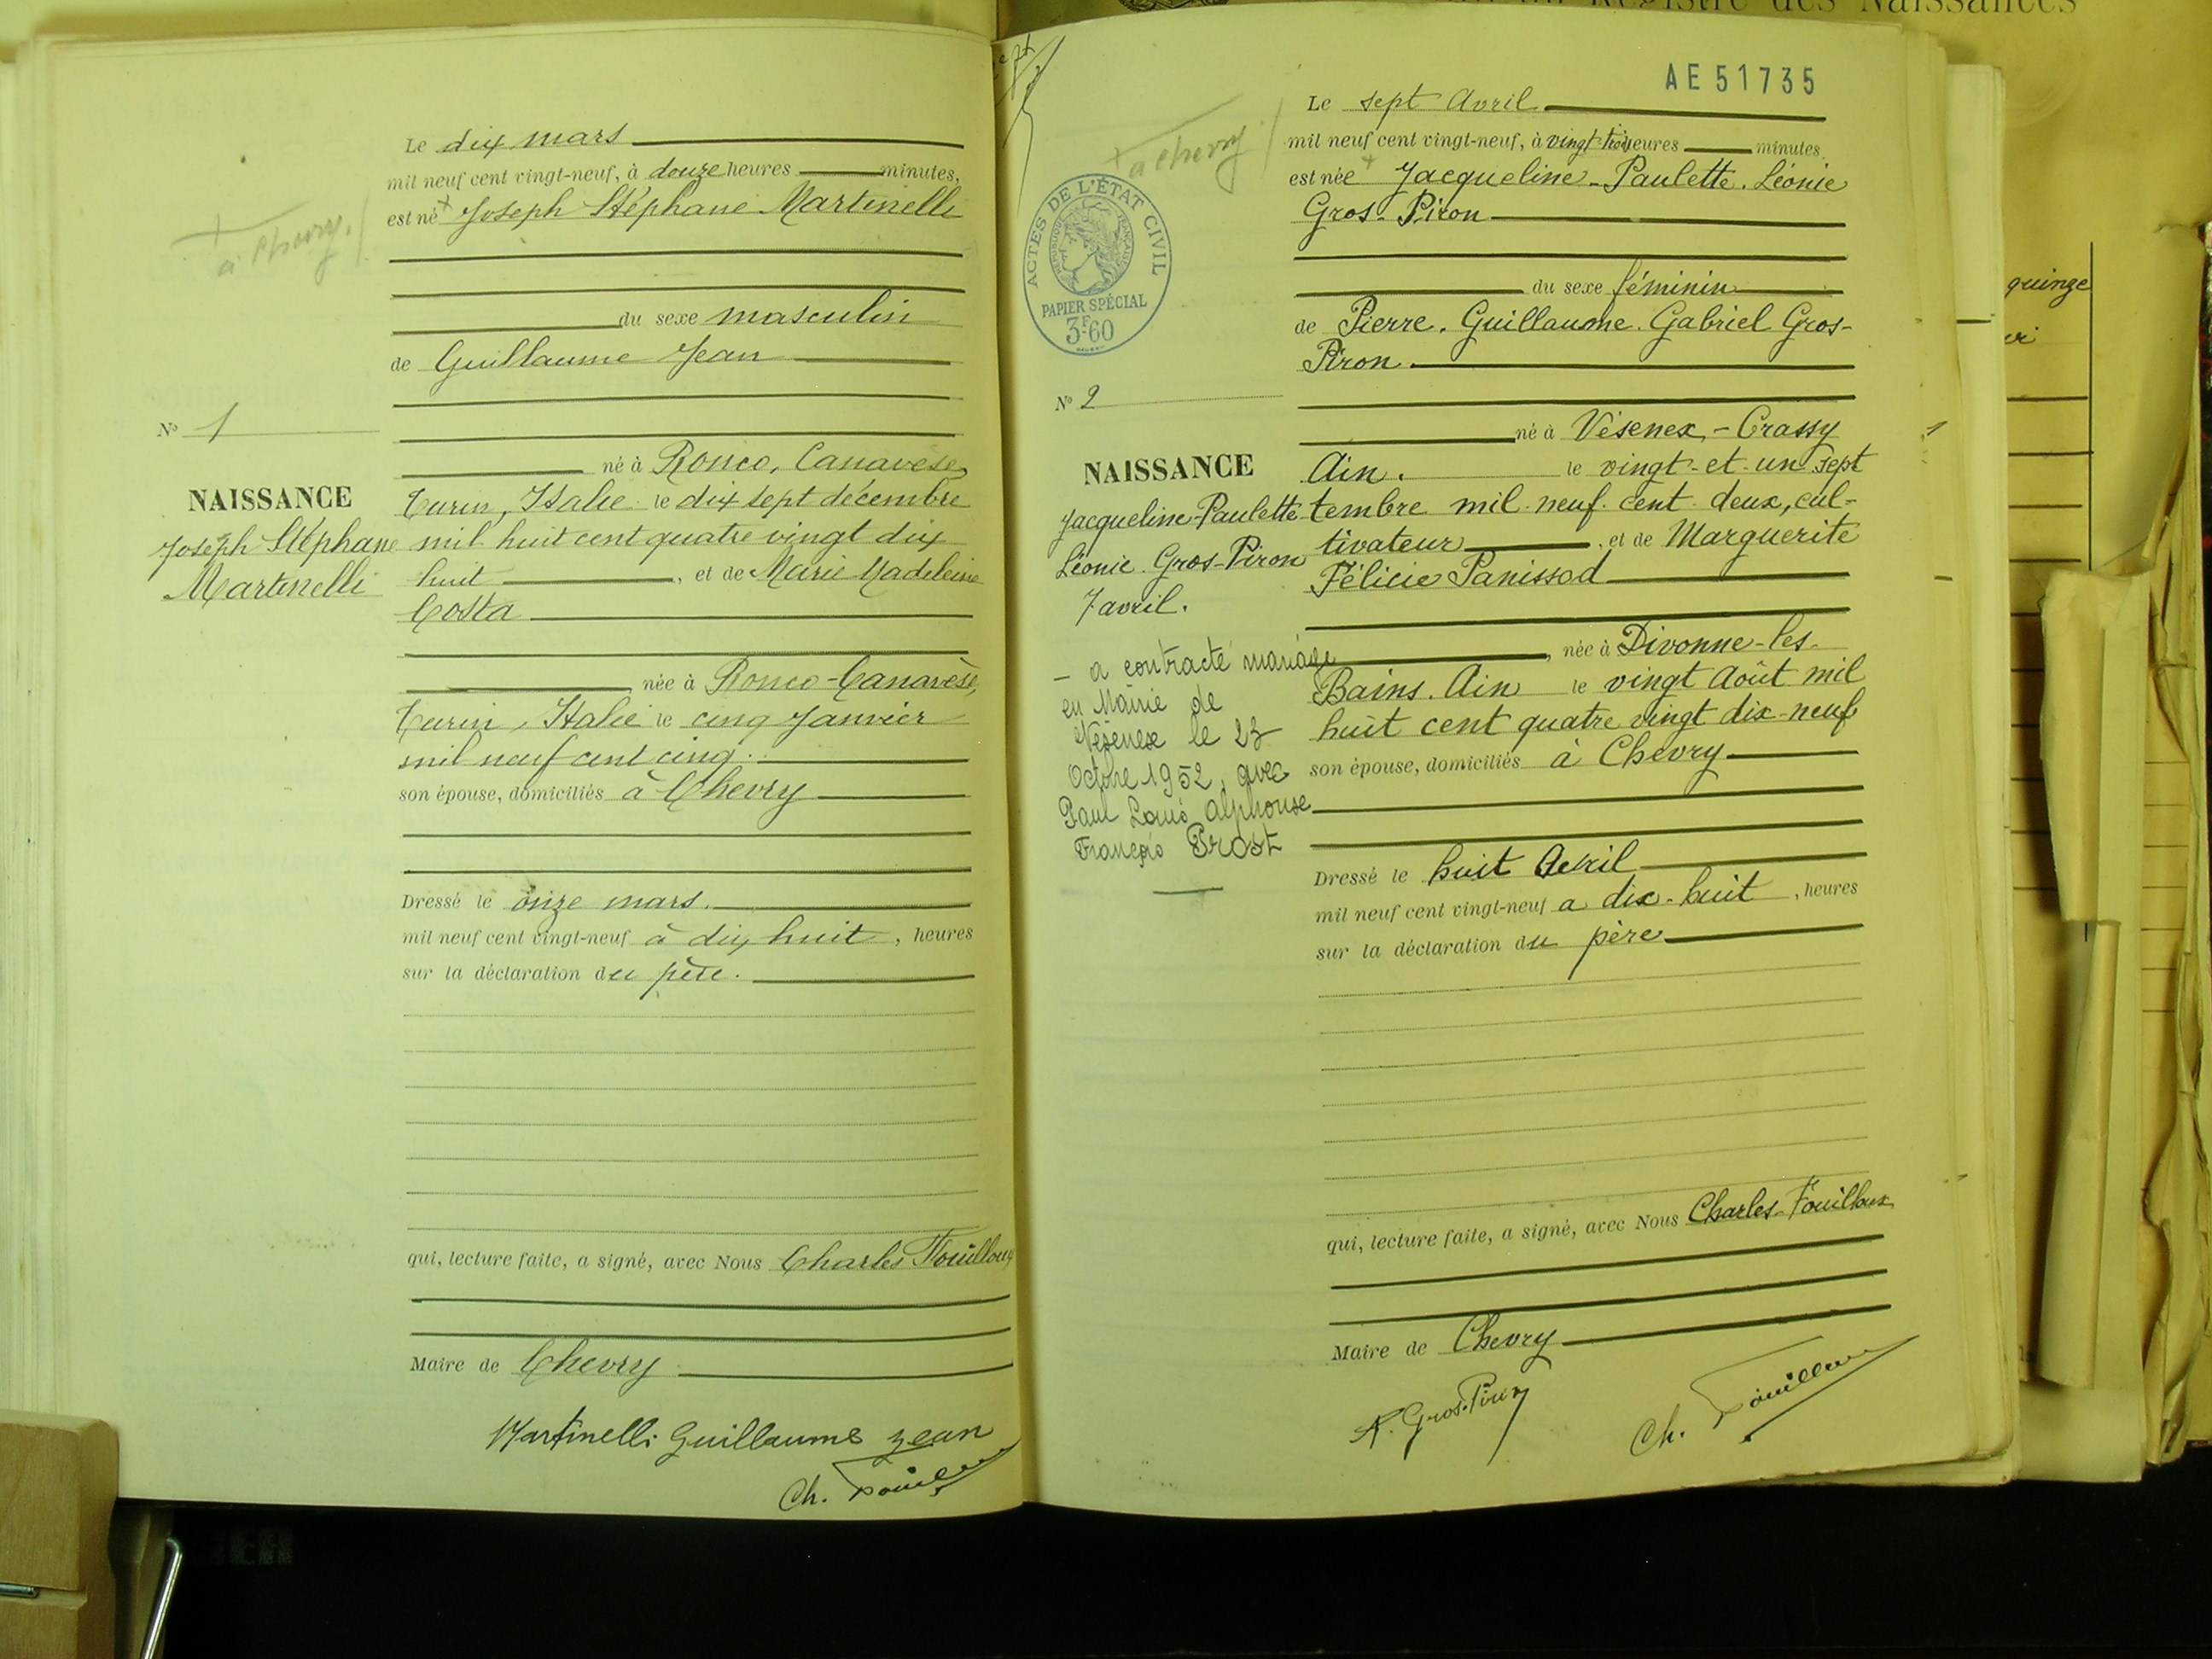 Le dix mars
mil neuf cent vingt-neuf, à douze heures minutes,
est né + Joseph Stéphane Martinelli
à Chevry.
du sexe masculin
de Guillaume Jean
N° 1
né à Ronco, Canavèse
NAISSANCE
Joseph Stéphane
Martinelli
Turin, Italie le dix sept décembre
mil huit cent quatre vingt dix
huit , et de Marie Madeleine
Costa
née à Ronco-Canavèse,
Turin, Italie le cinq Janvier
mil neuf cent cinq
son épouse, domiciliés à Chevry
Dressé le onze mars.
mil neuf cent vingt-neuf à dix huit , heures
sur la déclaration du père.
qui, lecture faite, a signé, avec Nous Charles Fouilloux
Maire de Chevry
Martinelli Guillaume Jean
Ch. Fouilloux
Registre des Naissances
AE 51735
Le sept Avril
mil neuf cent vingt-neuf, à vingt-trois heures minutes,
+ à Chevry
est née + Jacqueline-Paulette. Léonie
Gros-Piron
ACTES DE L'ÉTAT CIVIL
RÉPUBLIQUE FRANÇAISE
PAPIER SPÉCIAL
3F60
du sexe féminin
de Pierre. Guillaume. Gabriel Gros-
Piron
N° 2
né à Vésenex-Crassy
NAISSANCE
Jacqueline-Paulette
Léonie. Gros-Piron
7 avril.
Ain. le vingt-et-un sept
tembre mil neuf cent deux, cul-
tivateur , et de Marguerite
Félicie Panissod
- a contracté mariage
en Mairie de
Vésenex le 23
Octobre 1952, avec
Paul Louis Alphonse
François Prost
née à Divonne-les-
Bains. Ain le vingt Août mil
huit cent quatre vingt dix-neuf
son épouse, domiciliés à Chevry
Dressé le huit Avril
mil neuf cent vingt-neuf a dix-huit , heures
sur la déclaration du père
qui, lecture faite, a signé, avec Nous Charles Fouilloux
Maire de Chevry
Gros-Piron
Ch. Fouilloux
quinze